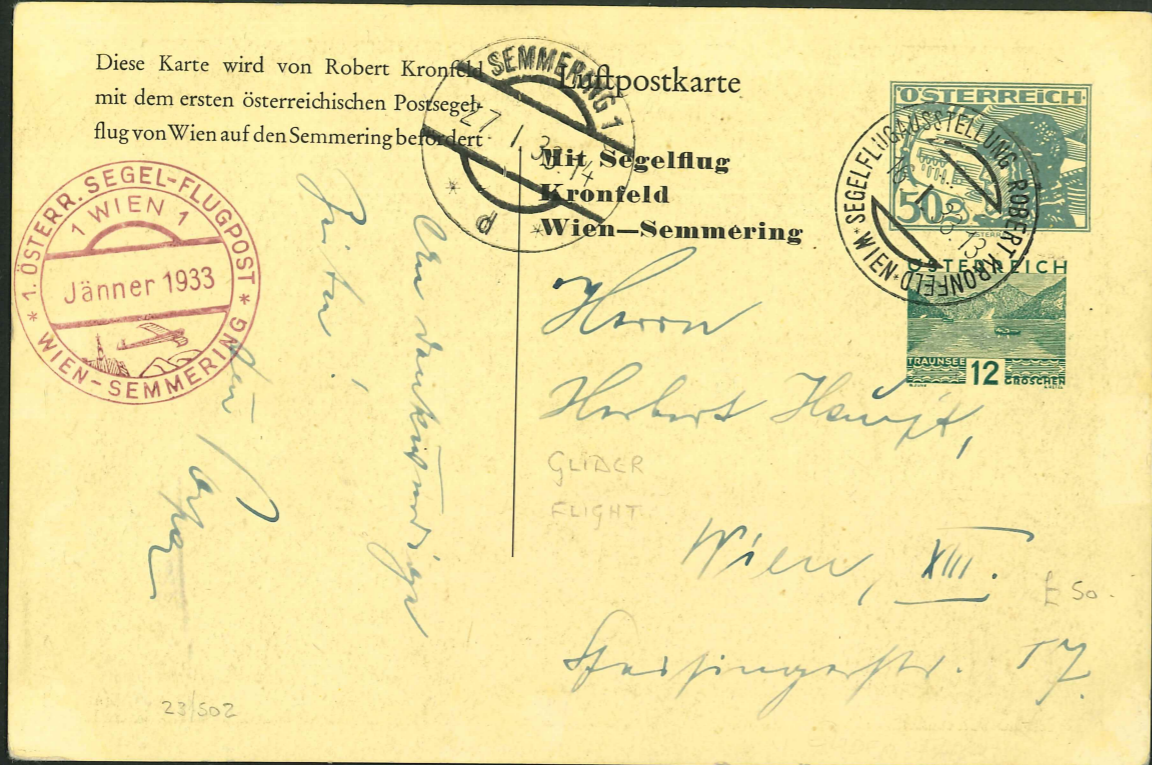 Diese Karte wird von Robert Kronfeld
mit dem ersten österreichischen Postsegel-
flug von Wien auf den Semmering befördert
Luftpostkarte
Mit Segelflug
Kronfeld
Wien—Semmering
SEMMERING 1
27. I 33.14
d
ÖSTERREICH
50
SEGELFLUGAUSSTELLUNG ROBERT KRONFELD
* WIEN *
I 33.13
ÖSTERREICH
TRAUNSEE 12 GROSCHEN
* 1. ÖSTERR. SEGEL-FLUGPOST *
1 WIEN 1
Jänner 1933
WIEN-SEMMERING
Herrn
Herbert Haupt,
Wien, XIII.
17
GLIDER
FLIGHT
£ 50.
Dein Papa
23/502